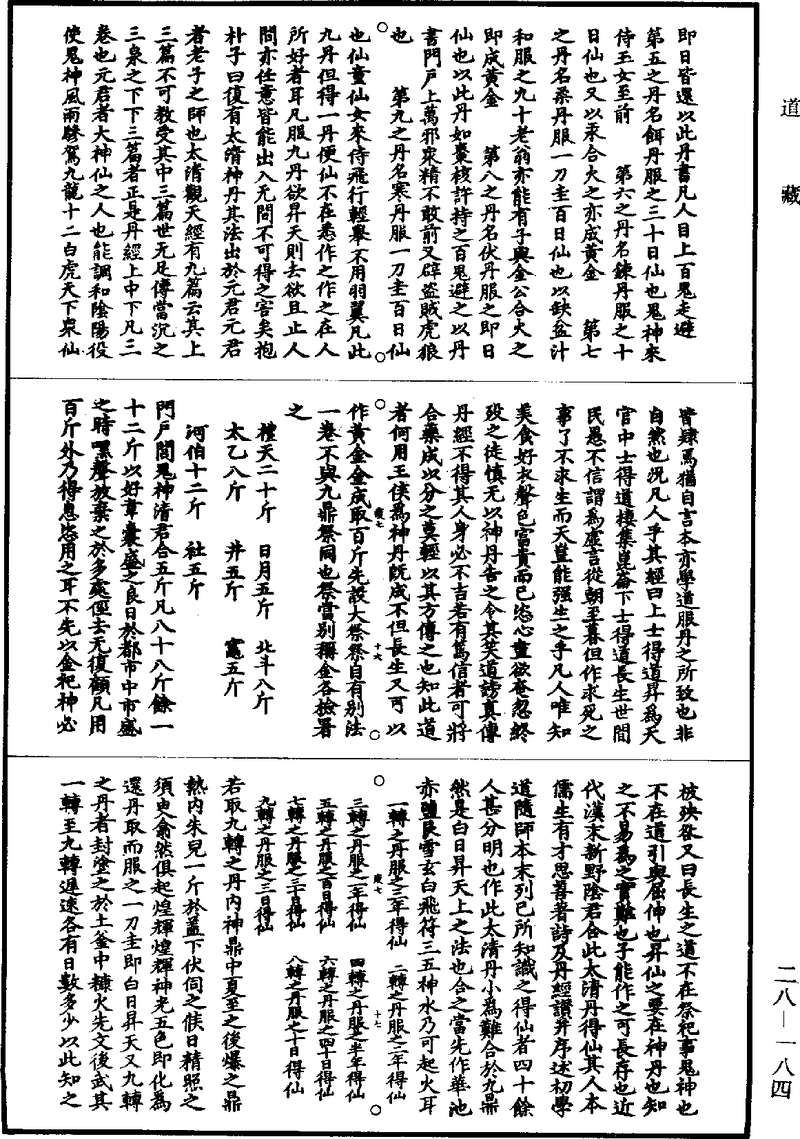 道藏
即日皆還以此丹書凡人目上百鬼走避
第五之丹名餌丹服之三十日仙也鬼神來
侍玉女至前　第六之丹名鍊丹服之十
日仙也又以汞合火之亦成黃金　第七
之丹名柔丹服一刀圭百日仙也以缺盆汁
和服之九十老翁亦能有子與金公合火之
即成黃金　第八之丹名伏丹服之即日
仙也以此丹如棗核許持之百鬼避之以丹
書門戶上萬邪眾精不敢前又辟盜賊虎狼
也　第九之丹名寒丹服一刀圭百日仙
也仙童仙女來侍飛行輕舉不用羽翼凡此
九丹但得一丹便仙不在悉作之作之在人
所好者耳凡服九丹欲昇天則去欲且止人
間亦任意皆能出入无間不可得之害矣抱
朴子曰復有太清神丹其法出於元君元君
者老子之師也太清觀天經有九篇云其上
三篇不可教受其中三篇世无足傳當沉之
三泉之下下三篇者正是丹經上中下凡三
卷也元君者大神仙之人也能調和陰陽役
使鬼神風雨驂駕九龍十二白虎天下眾仙
皆隸焉猶自言本亦學道服丹之所致也非
自然也況凡人乎其經曰上士得道昇為天
官中士得道棲集崑崙下士得道長生世間
民愚不信謂為虛言從朝至暮但作求死之
事了不求生而天豈能强生之乎凡人唯知
美食好衣聲色富貴而已恣心盡欲奄忽終
歿之徒慎无以神丹告之令其笑道謗真傳
丹經不得其人身必不吉若有篤信者可將
合藥成以分之莫輕以其方傳之也知此道
者何用王侯為神丹既成不但長生又可以
作黃金金成取百斤先設大祭祭自有別法
一卷不與九鼎祭同也祭當別稱金各檢署
之
禮天二十斤　日月五斤　北斗八斤
太乙八斤　井五斤　竈五斤
河伯十二斤　社五斤
門戶閭鬼神清君合五斤凡八十八斤餘一
十二斤以好韋囊盛之良日於都市中市盛
之時嘿聲放棄之於多處徑去无復顧凡用
百斤外乃得恣用之耳不先以金祀神必
被殃咎又曰長生之道不在祭祀事鬼神也
不在道引與屈伸也昇仙之要在神丹也知
之不易為之實難也子能作之可長存也近
代漢末新野陰君合此太清丹得仙其人本
儒生有才思善著詩及丹經讚并序述初學
道隨師本末列已所知識之得仙者四十餘
人甚分明也作此太清丹小為難合於九鼎
然是白日昇天上之法也合之當先作華池
赤鹽艮雪玄白飛符三五神水乃可起火耳
一轉之丹服之三年得仙　二轉之丹服之二年得仙
三轉之丹服之一年得仙　四轉之丹服之半年得仙
五轉之丹服之百日得仙　六轉之丹服之四十日得仙
七轉之丹服之三十日得仙　八轉之丹服之十日得仙
九轉之丹服之三日得仙
若取九轉之丹內神鼎中夏至之後爆之鼎
熱內朱兒一斤於蓋下伏伺之候日精照之
須臾翕然俱起煌輝煌輝神光五色即化為
還丹取而服之一刀圭即白日昇天又九轉
之丹者封塗之於土釜中糠火先文後武其
一轉至九轉遲速各有日數多少以此知之
二八—一八四